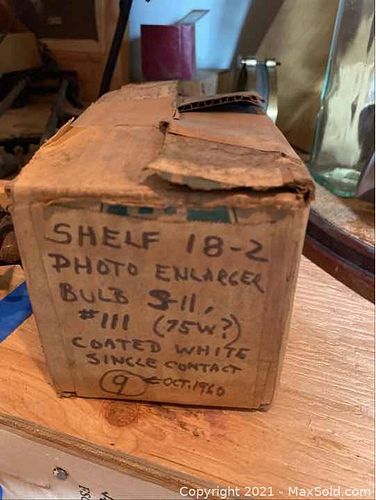 SHELF 18-2
PHOTO ENLARGER
BULB S-11,
#111 (75W?)
COATED WHITE
SINGLE CONTACT
9 OCT. 1960
Copyright © 2021 - MaxSold.com